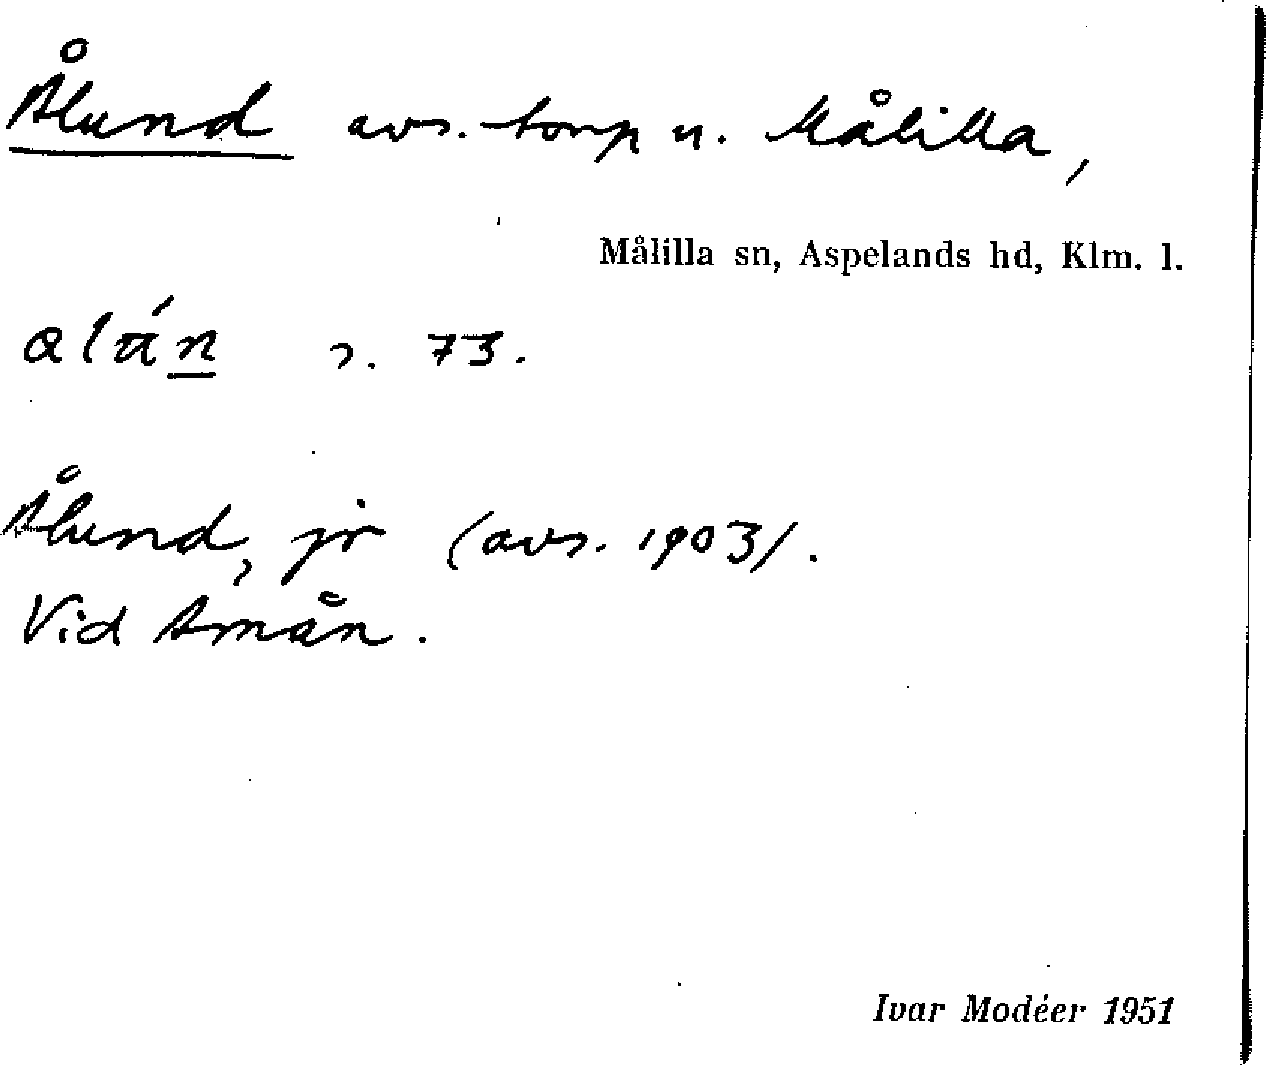 Ålund avs. torp u. Målilla,
Målilla sn, Aspelands hd, Klm. l.
s. 73.
Ålund, jr (avs. 1903).
Vid Åmån.
Ivar Modéer 1951